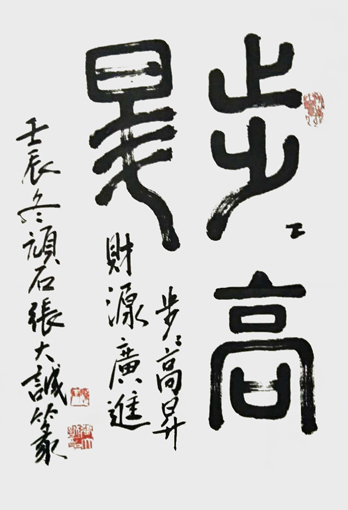 步〻高
昇
步〻高昇
財源廣進
壬辰冬頑石張大誠篆